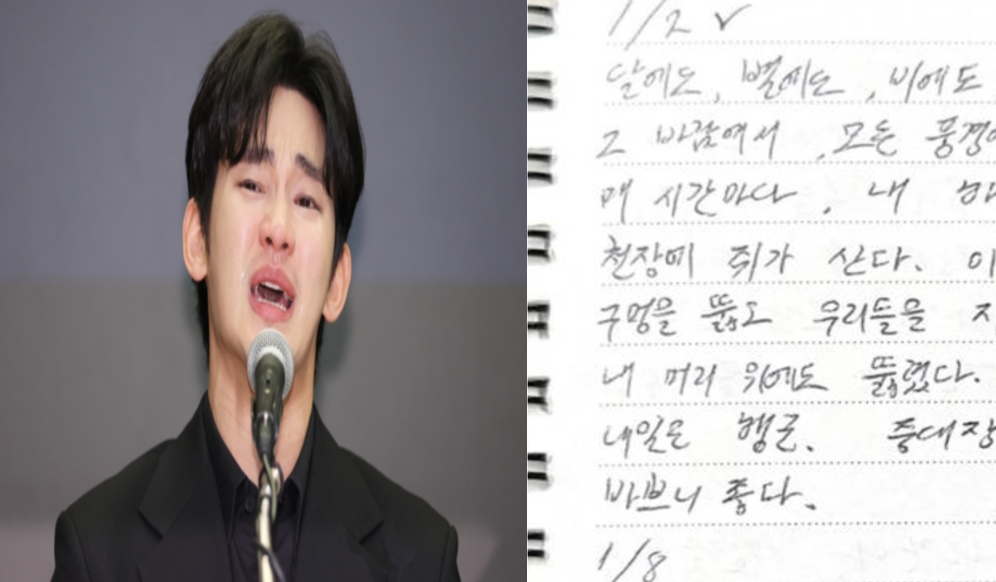 1/2 ✓
달에도, 별에도, 비에도
그 바람에서, 모든 풍경
매 시간마다, 내
천장에 쥐가 산다. 이
구멍을 뚫고 우리들을 지
내 머리 위에도 뚫렸다.
내일은 행군. 중대장
바쁘니 좋다.
1/8